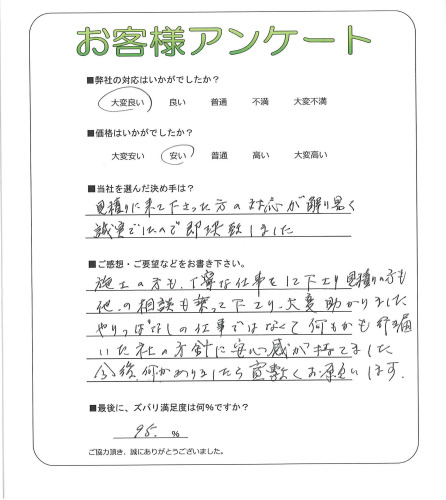 お客様アンケート
■弊社の対応はいかがでしたか?
大変良い 良い 普通 不満 大変不満
■価格はいかがでしたか?
大変安い 安い 普通 高い 大変高い
■当社を選んだ決め手は?
見積りに来て下さった方の対応が解り易く
誠実でしたので即決致しました
■ご感想・ご要望などをお書き下さい。
施工の方も、丁寧な仕事をして下さり見積りの方も
他の相談も乗って下さり、大変助かりました
やりっぱなしの仕事ではなくて何もかも行き届
いた社の方針に安心感が持てました
今後、何かありましたら宜敷くお願いします。
■最後に、ズバリ満足度は何%ですか?
95. %
ご協力頂き、誠にありがとうございました。